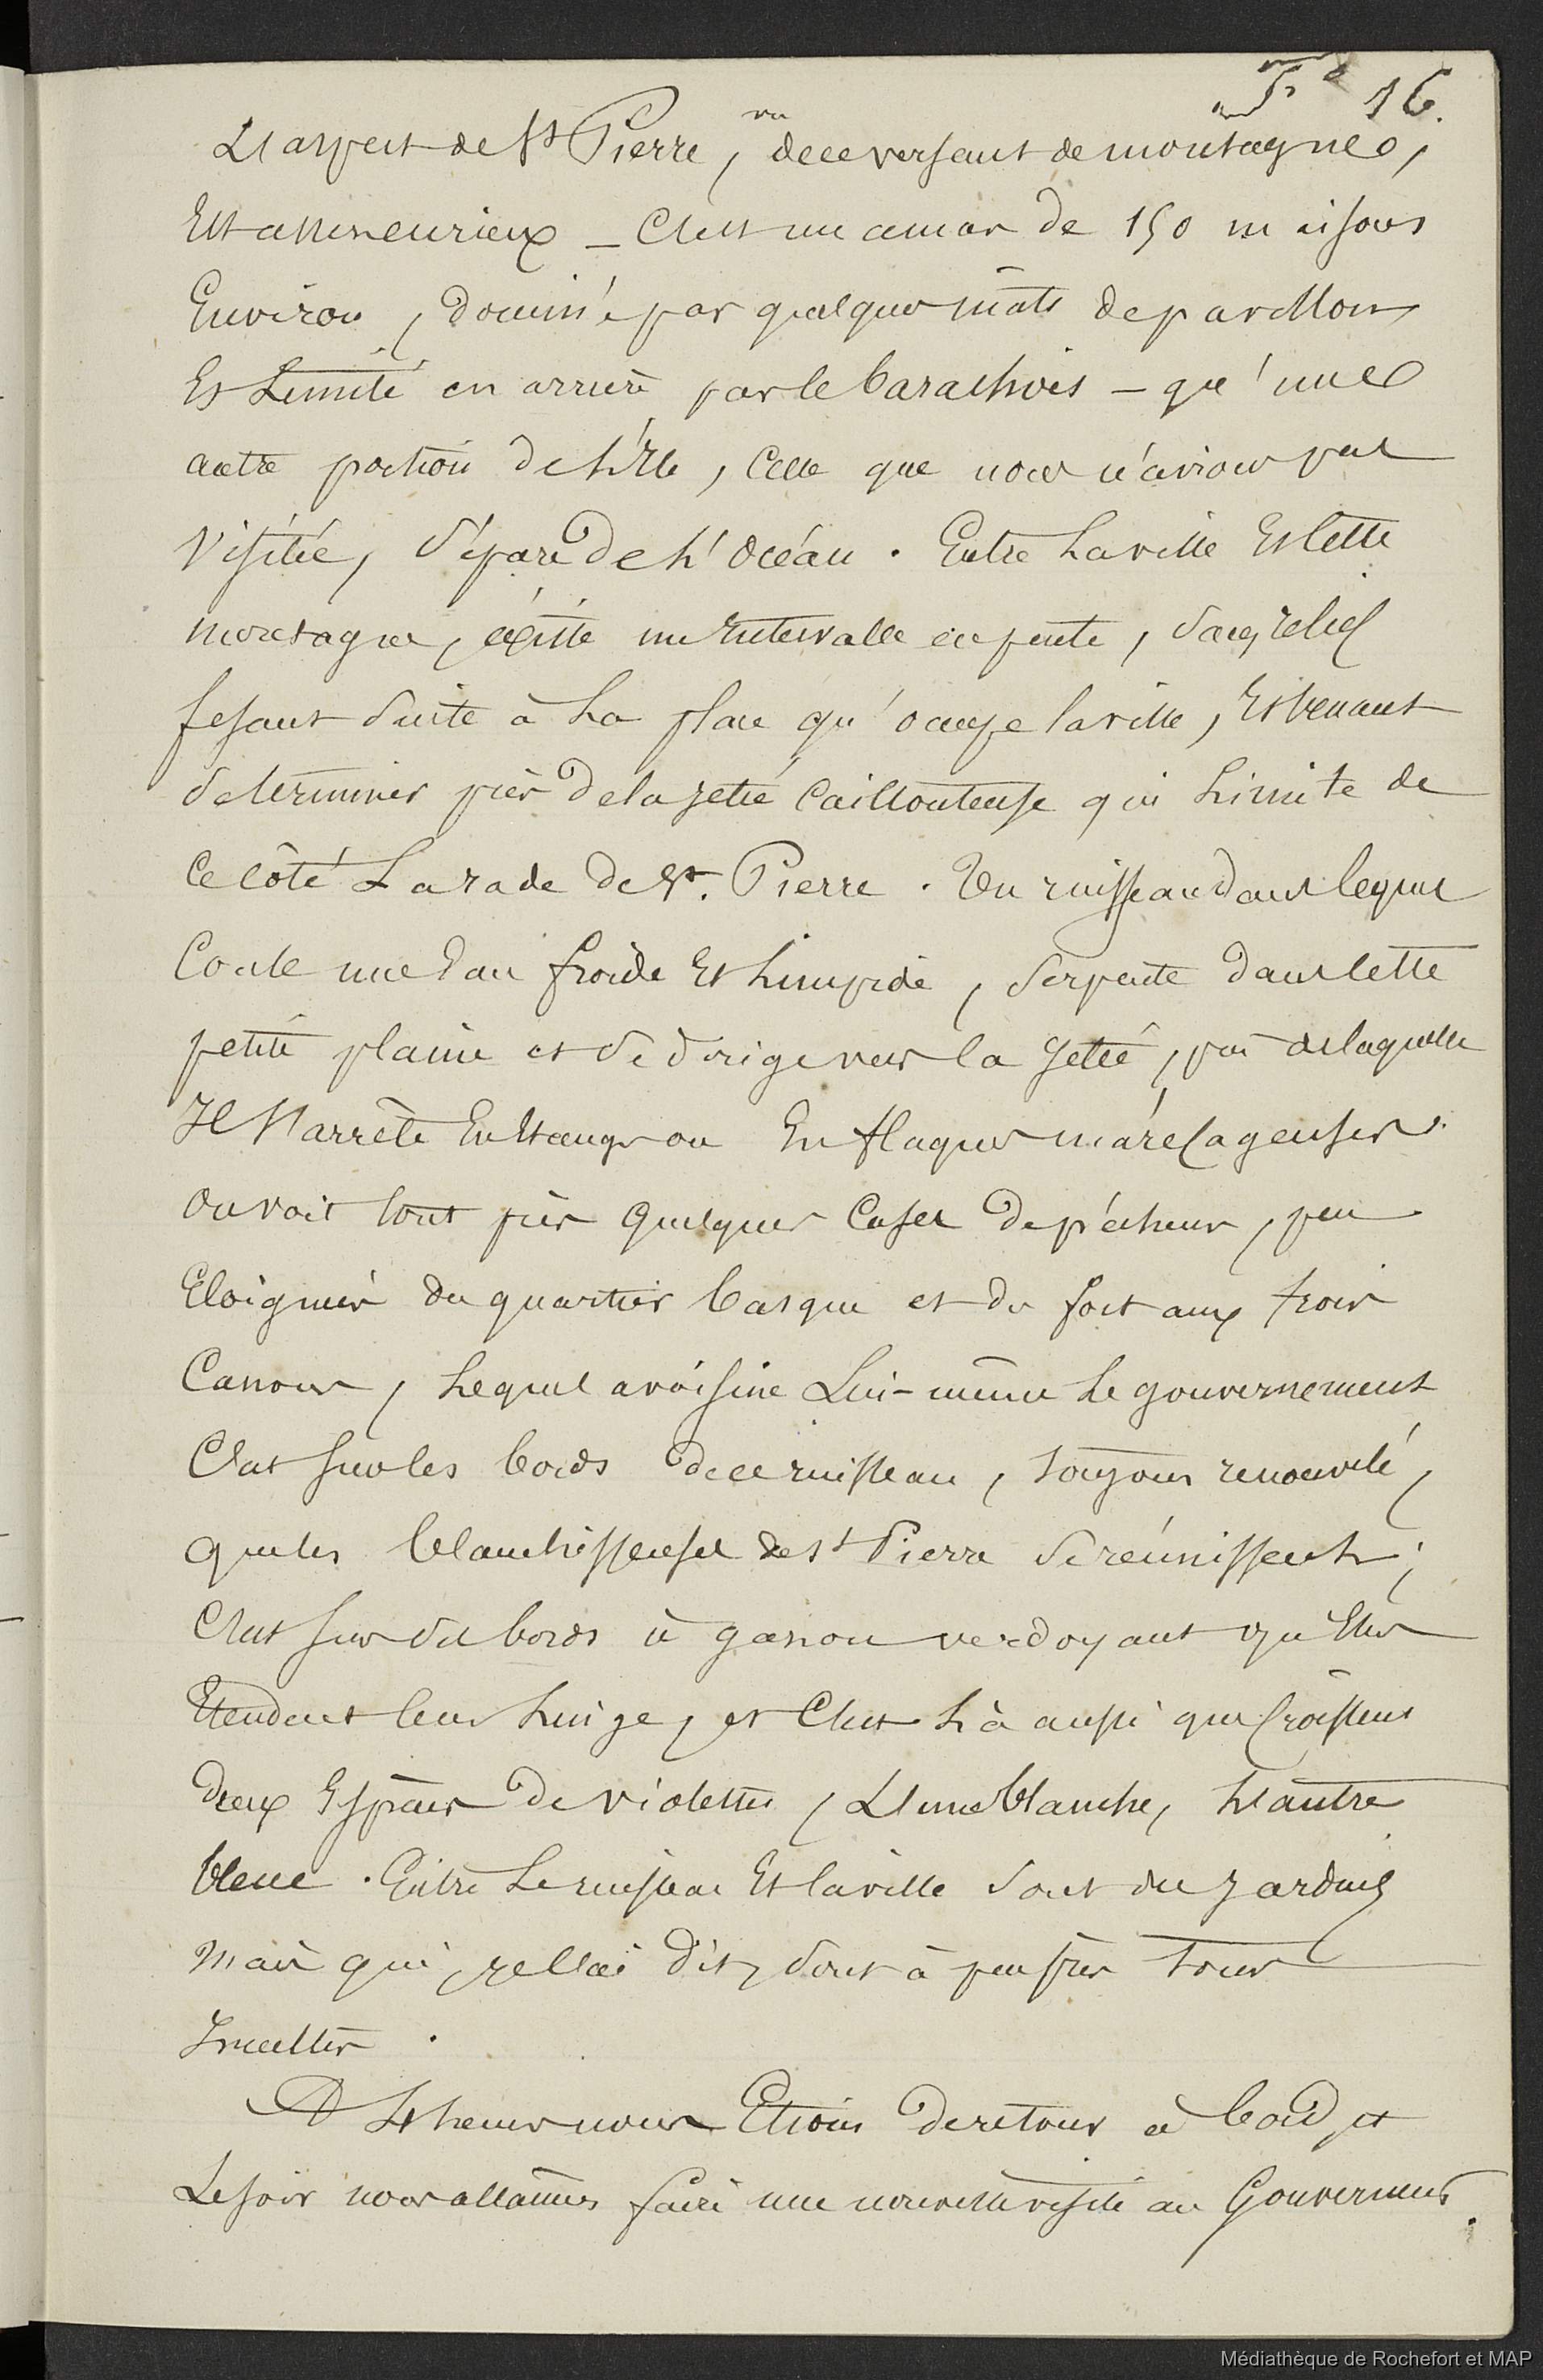 F° 16.
L'aspect de St Pierre, vu de ce versant de montagne,
Est assez curieux _ C'est un amas de 150 maisons
Environ, dominé par quelques mâts de pavillons
Et Limité en arrière par le barachois – qu'une
autre portion de L'Ile, Celle que nous n'avions pas
Visitée, Sépare de L'Océan. Entre La ville Et Cette
montagne, existe un Intervalle en pente, Sans relief
fesant Suite à La place qu'occupe la ville, Et Venant
Se terminer près de la Jetée Caillouteuse qui Limite de
Ce côté La rade de St. Pierre. Un ruisseau dans lequel
Coule une Eau froide Et Limpide, Serpente dans Cette
petite plaine et Se dirige vers la Jetée, près de laquelle
Il S'arrête En Etangs ou En flaques marécageuses.
On voit tout près Quelques Cases de pêcheurs, peu
Eloignées du quartier basque et du fort aux trois
Canons, Lequel avoisine Lui-même Le gouvernement
C'est sur les bords de ce ruisseau, toujours renouvelé,
que les blanchisseuses de St Pierre Se réunissent;
C'est sur Ses bords à gason verdoyant qu'Elles
Etendent leur Linge, et C'est Là aussi que Croissent
deux Espèces de violettes, L'une blanche, L'autre
bleue. Entre Le ruisseau Et la ville Sont des Jardins
Mais qui, Je l'ai dit, Sont à peu près tous
Incultes.
A 4 heures nous Etions de retour à bord, et
Le soir nous allâmes faire une nouvelle visite au Gouverneur.
Médiathèque de Rochefort et MAP